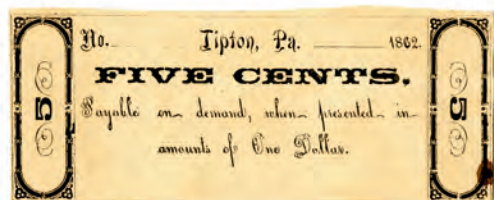 No. Tipton, Pa. 1862.
FIVE CENTS.
Payable on demand, when presented in
amounts of One Dollar.
5
5